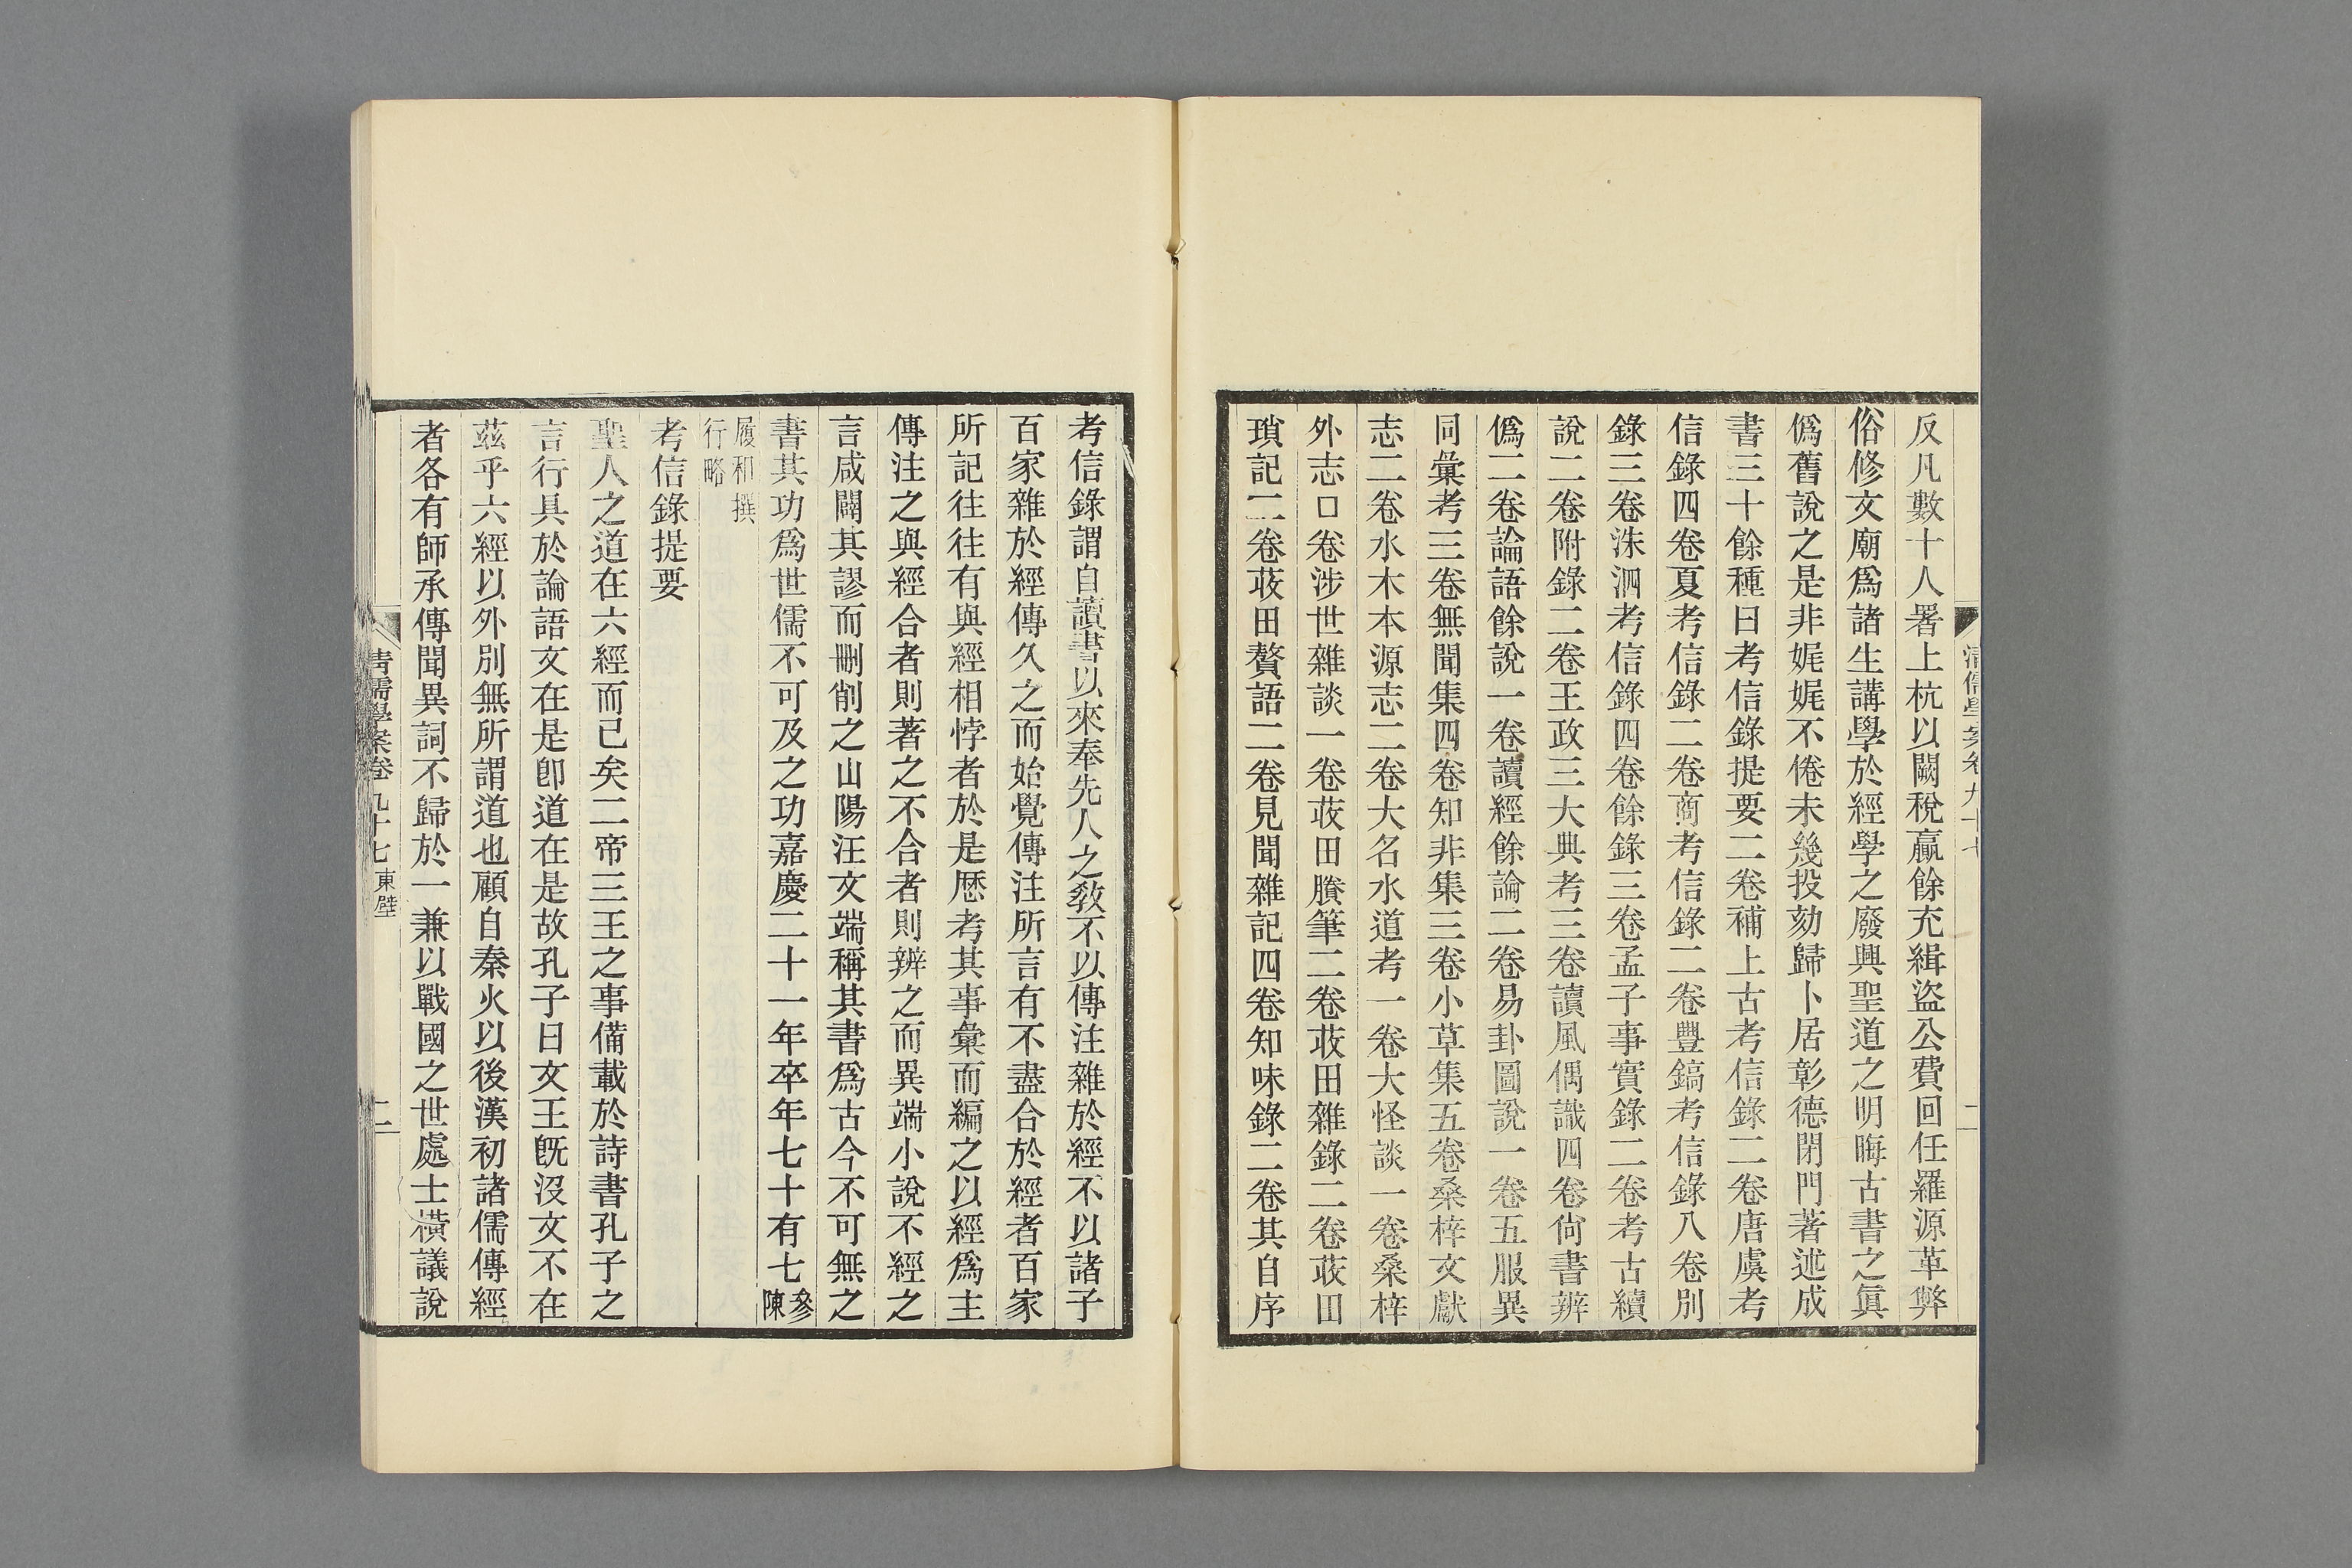 反凡數十人署上杭以關稅贏餘充緝盜公費回任羅源革弊
俗修文廟爲諸生講學於經學之廢興聖道之明晦古書之眞
僞舊說之是非娓娓不倦未幾投劾歸卜居彰德閉門著述成
書三十餘種曰考信錄提要二卷補上古考信錄二卷唐虞考
信錄四卷夏考信錄二卷商考信錄二卷豐鎬考信錄八卷別
錄三卷洙泗考信錄四卷餘錄三卷孟子事實錄二卷考古續
說二卷附錄二卷王政三大典考三卷讀風偶識四卷尙書辨
僞二卷論語餘說一卷讀經餘論二卷易卦圖說一卷五服異
同彙考三卷無聞集四卷知非集三卷小草集五卷桑梓文獻
志二卷水木本源志二卷大名水道考一卷大怪談一卷桑梓
外志口卷涉世雜談一卷荍田賸筆二卷荍田雜錄二卷荍田
瑣記二卷荍田贅語二卷見聞雜記四卷知味錄二卷其自序
清儒學案卷九十七
二
考信錄謂自讀書以來奉先人之敎不以傳注雜於經不以諸子
百家雜於經傳久之而始覺傳注所言有不盡合於經者百家
所記往往有與經相悖者於是歷考其事彙而編之以經爲主
傳注之與經合者則著之不合者則辨之而異端小說不經之
言咸闢其謬而刪削之山陽汪文端稱其書爲古今不可無之
書其功爲世儒不可及之功嘉慶二十一年卒年七十有七參陳
履和撰
行略
考信錄提要
聖人之道在六經而已矣二帝三王之事備載於詩書孔子之
言行具於論語文在是卽道在是故孔子曰文王旣沒文不在
茲乎六經以外別無所謂道也顧自秦火以後漢初諸儒傳經
者各有師承傳聞異詞不歸於一兼以戰國之世處士橫議說
清儒學案卷九十七 東壁
二